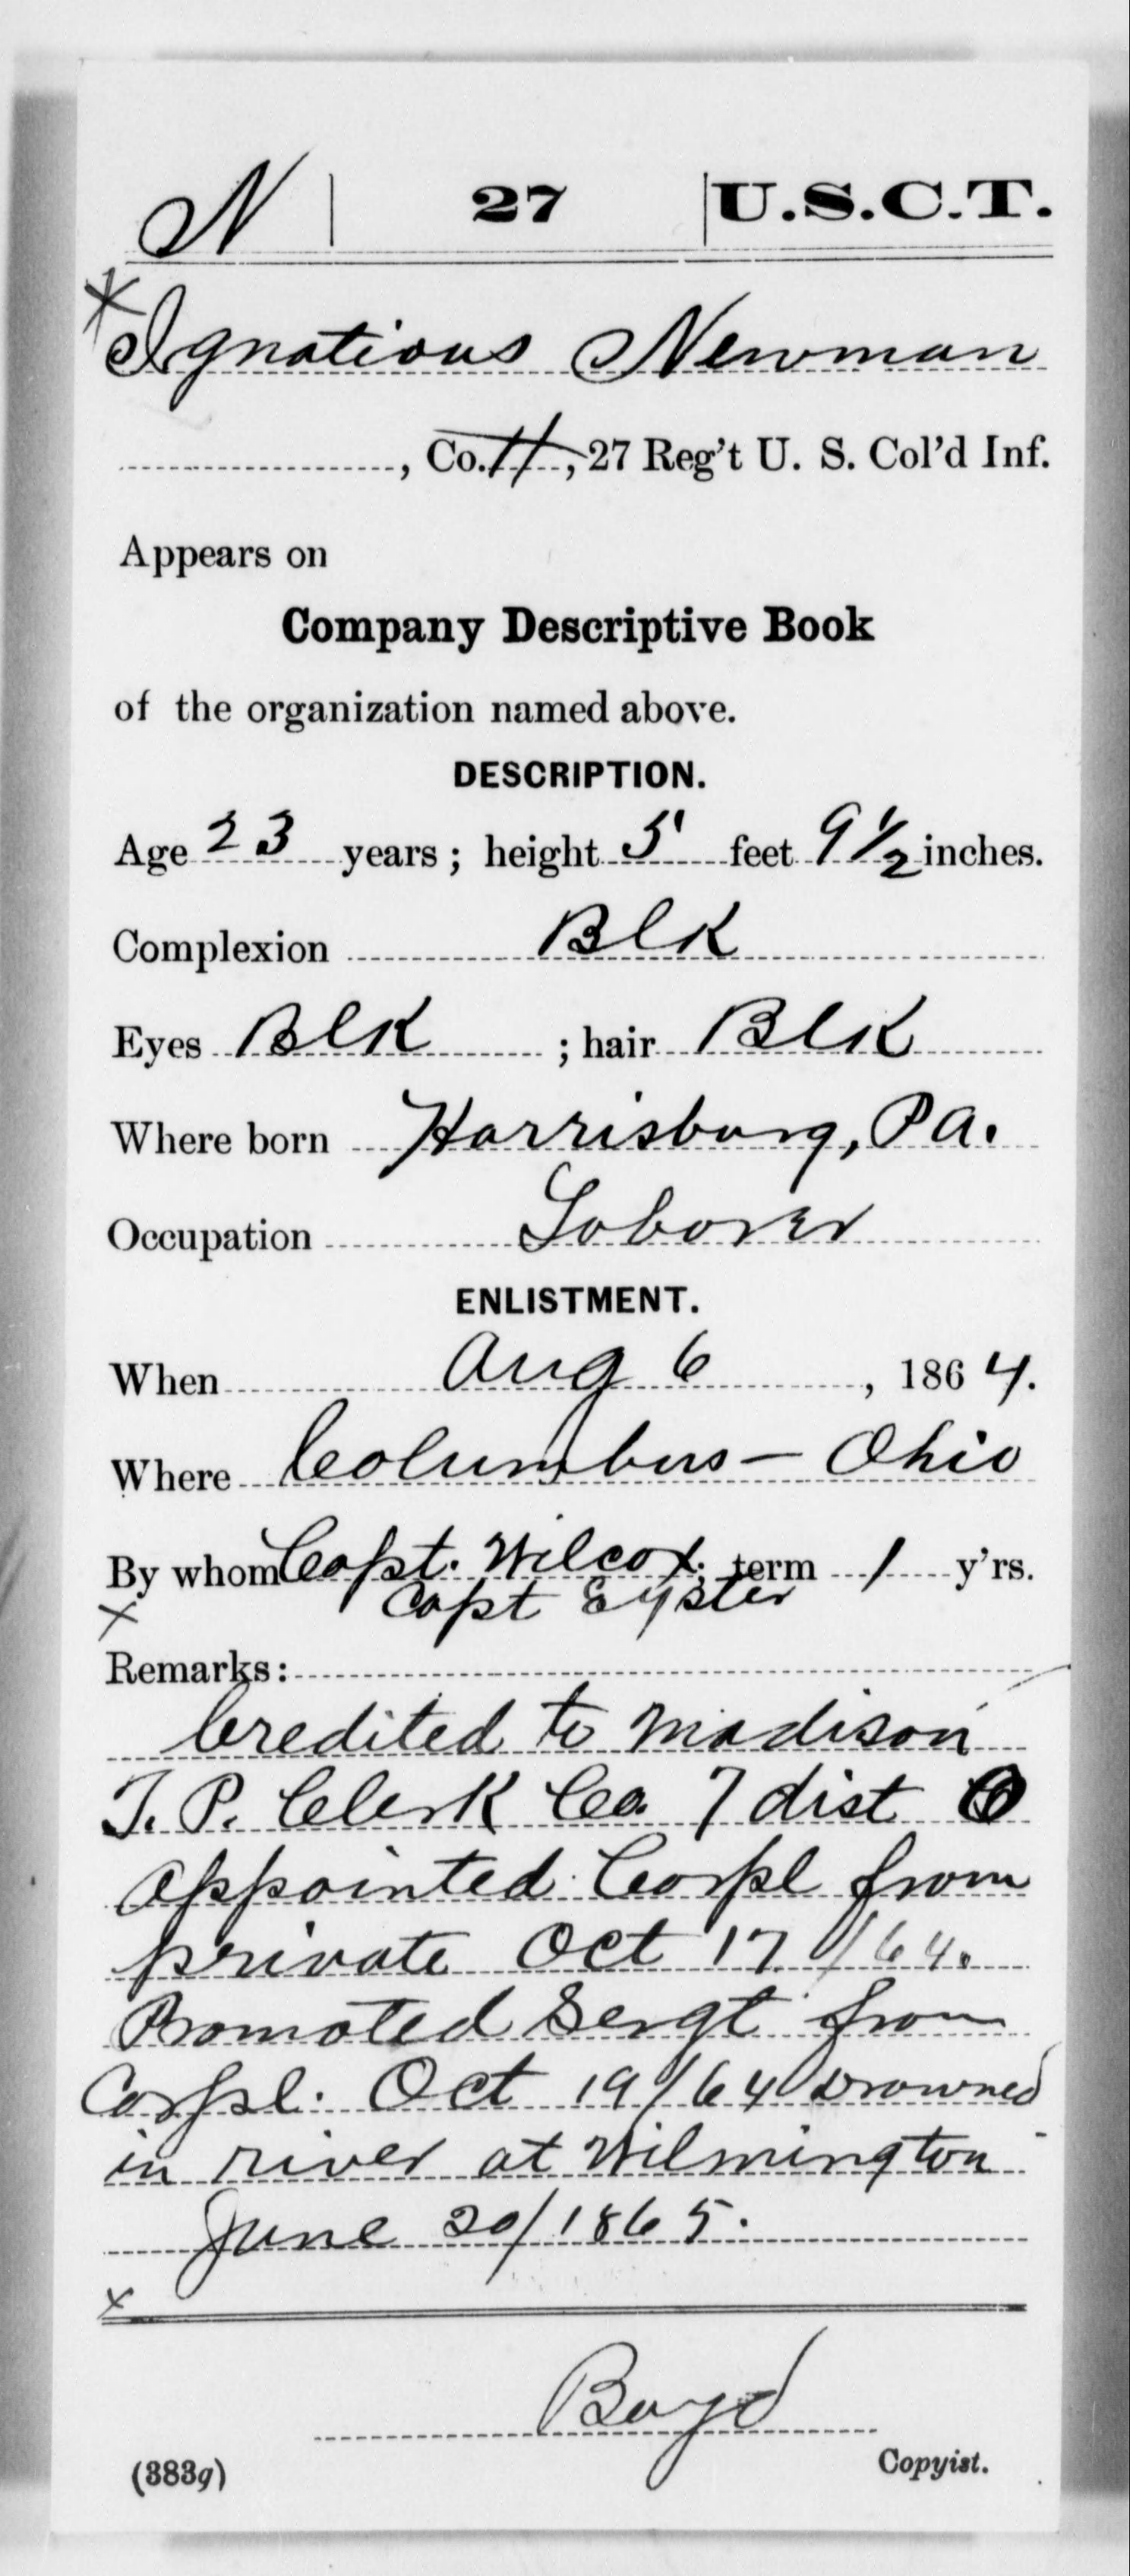 N | 27 | U.S.C.T.
Ignatious Newman
, Co. H, 27 Reg't U. S. Col'd Inf.
Appears on
Company Descriptive Book
of the organization named above.
DESCRIPTION.
Age 23 years; height 5' feet 9 1/2 inches.
Complexion Blk
Eyes Blk ; hair Blk
Where born Harrisburg, Pa.
Occupation Laborer
ENLISTMENT.
When Aug 6, 1864.
Where Columbus - Ohio
By whom Capt. Wilcox; term 1 y'rs.
Capt Eyster
x
Remarks:
Credited to Madison
T. P. Clerk Co. 7 dist O
Appointed Corpl from
private Oct 17/64.
Promoted Sergt from
Corpl. Oct 19/64 Drowned
in river at Wilmington
June 20/1865.
x
Boyd
(383g) Copyist.